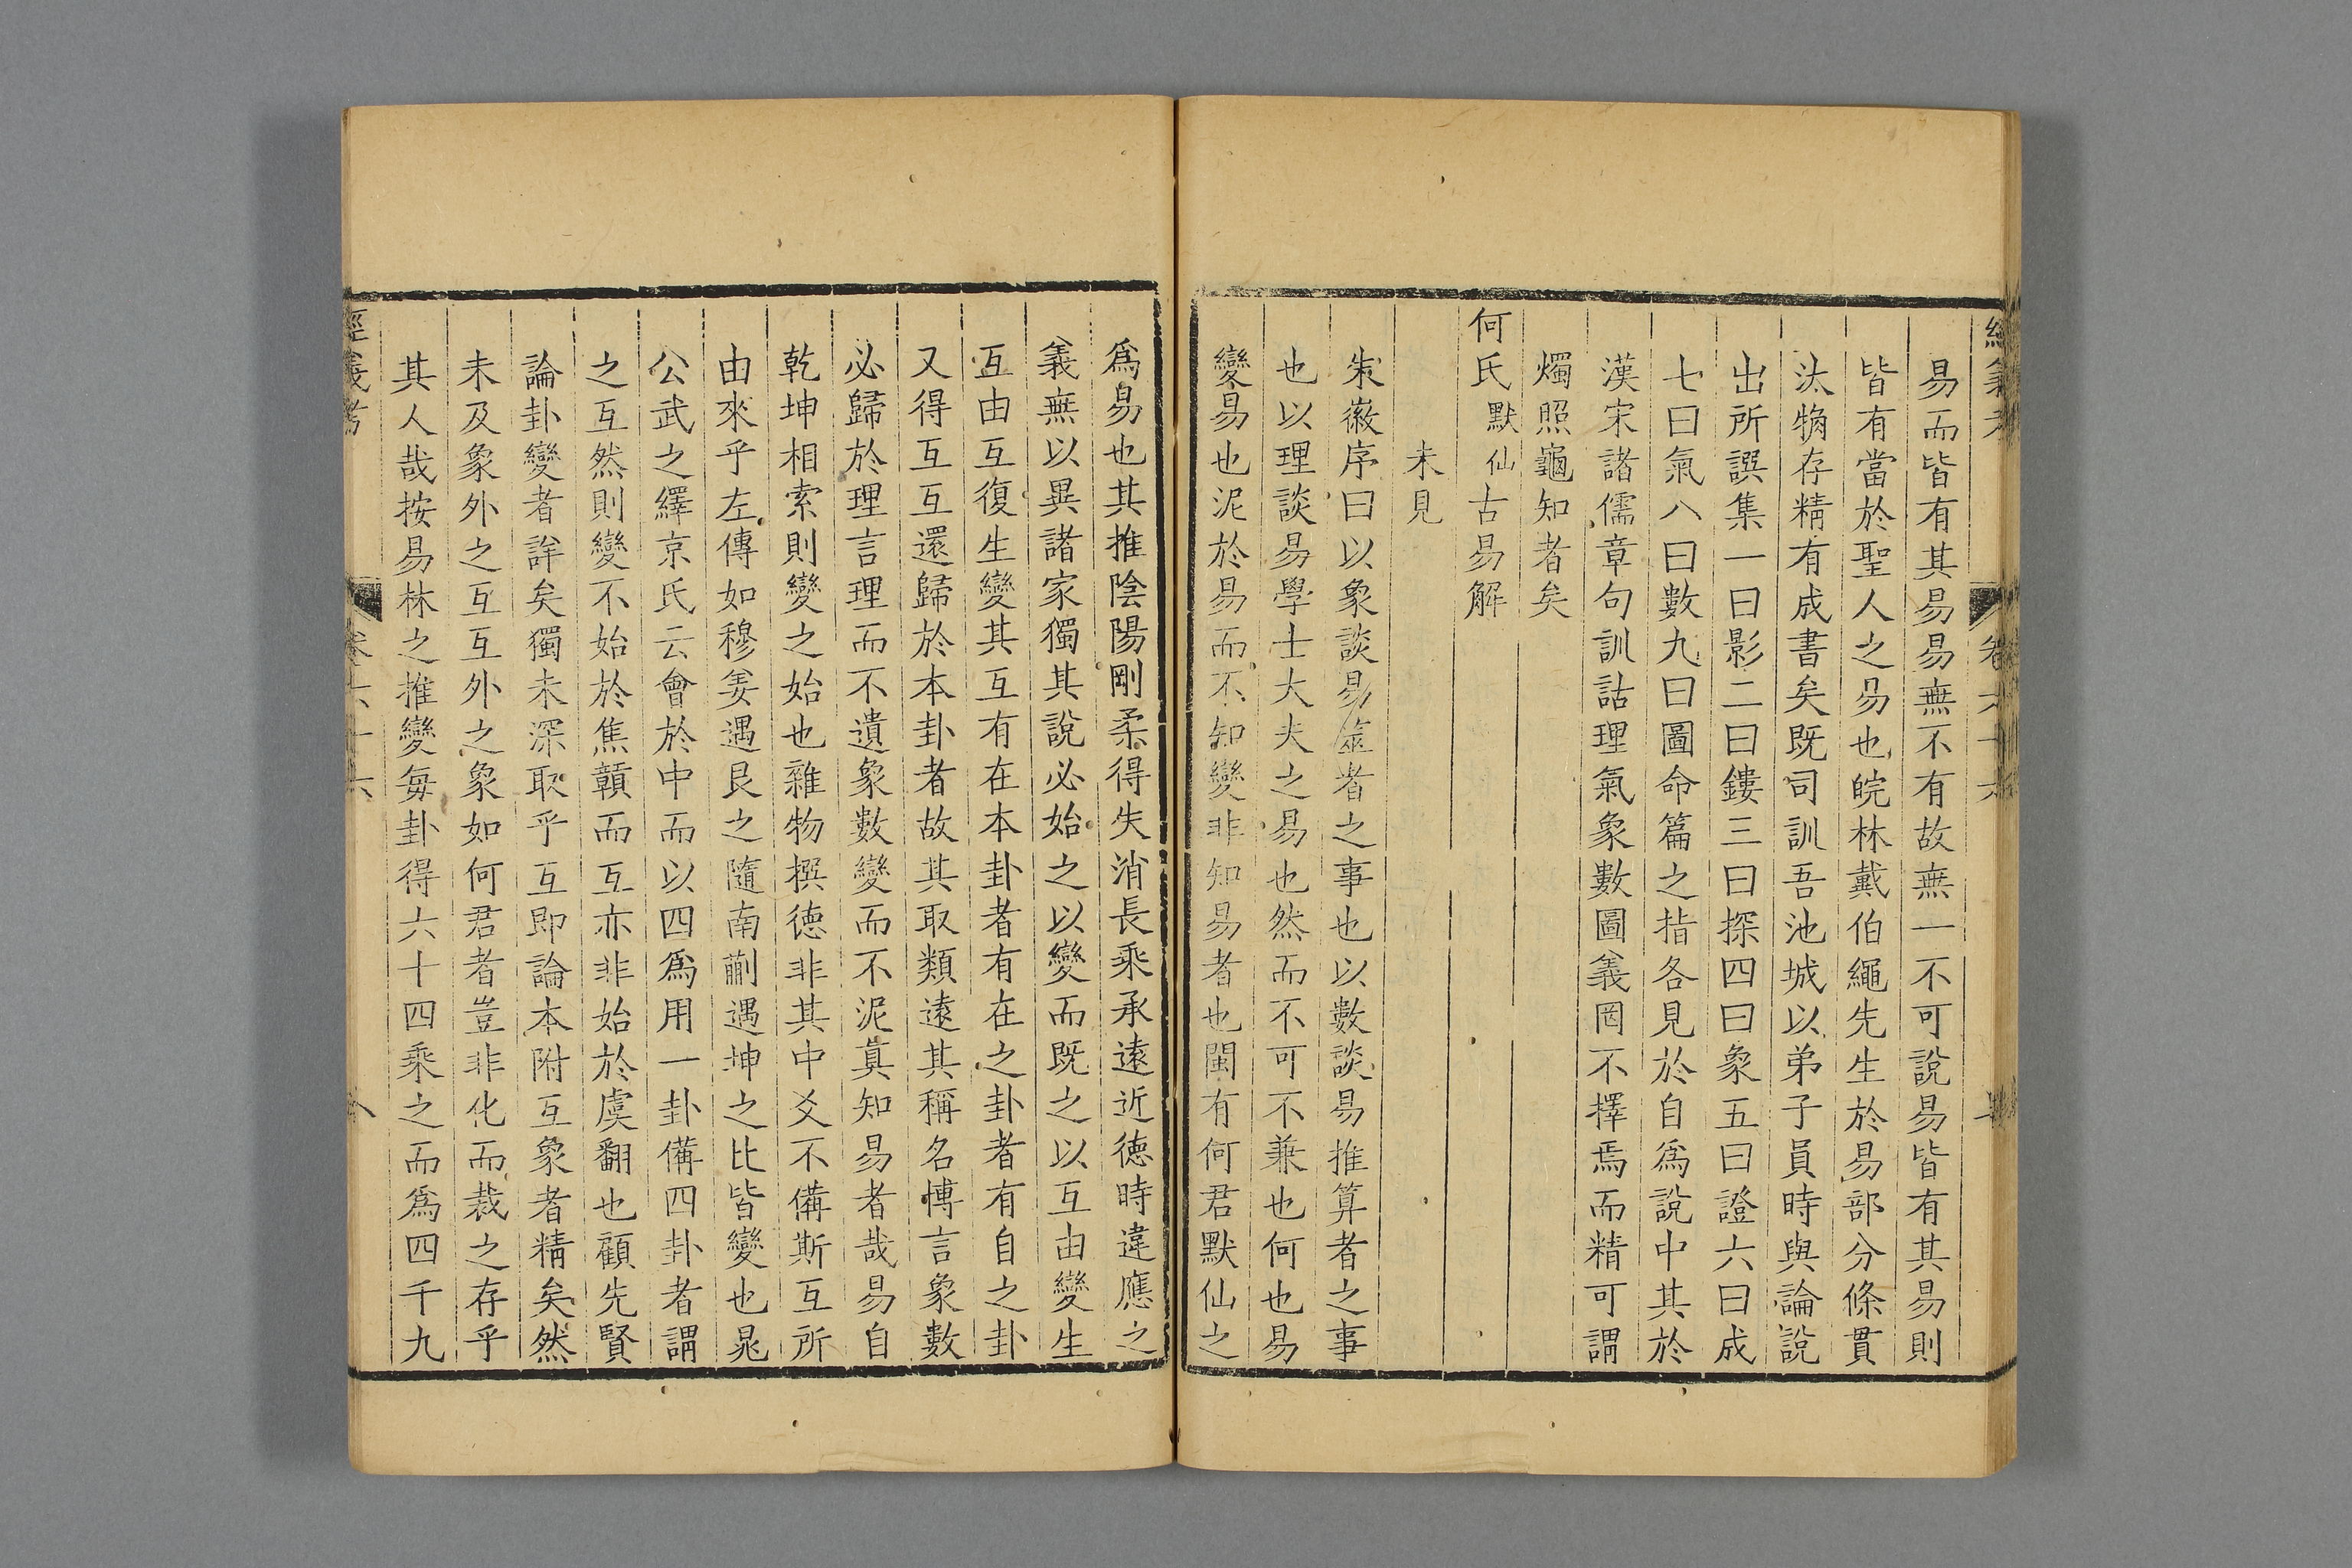 易而皆有其易易無不有故無一不可說易皆有其易則
皆有當於聖人之易也皖林戴伯繩先生於易部分條貫
汰觕存精有成書矣既司訓吾池城以弟子員時與論說
出所譔集一曰影二曰鏤三曰探四曰象五曰證六曰成
七曰氣八曰數九曰圖命篇之指各見於自爲說中其於
漢宋諸儒章句訓詁理氣象數圖義罔不擇焉而精可謂
燭照龜知者矣
何氏默仙古易解
未見
朱徽序曰以象談易筮者之事也以數談易推算者之事
也以理談易學士大夫之易也然而不可不兼也何也易
變易也泥於易而不知變非知易者也閩有何君默仙之
爲易也其推陰陽剛柔得失消長乘承遠近德時違應之
義無以異諸家獨其說必始之以變而既之以互由變生
互由互復生變其互有在本卦者有在之卦者有自之卦
又得互互還歸於本卦者故其取類遠其稱名博言象數
必歸於理言理而不遺象數變而不泥真知易者哉易自
乾坤相索則變之始也雜物撰德非其中爻不備斯互所
由來乎左傳如穆姜遇艮之隨南蒯遇坤之比皆變也晁
公武之繹京氏云會於中而以四爲用一卦備四卦者謂
之互然則變不始於焦贛而互亦非始於虞翻也顧先賢
論卦變者詳矣獨未深取乎互即論本附互象者精矣然
未及象外之互互外之象如何君者豈非化而裁之存乎
其人哉按易林之推變每卦得六十四乘之而爲四千九
經義考
卷六十六
八